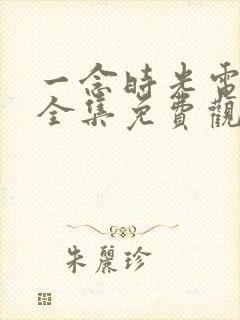 一念時光電
全集免費觀
朱麗珍